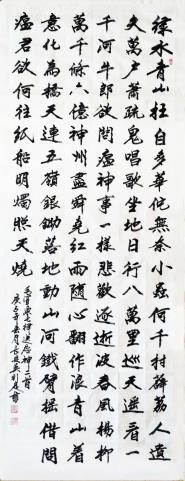 緑水青山枉自多華佗無奈小蟲何千村薜荔人遺
矢萬户蕭疏鬼唱歌坐地日行八萬里巡天遥看一
千河牛郎欲問瘟神事一樣悲歡逐逝波春風楊柳
萬千條六億神州盡舜堯紅雨随心翻作浪青山着
意化為橋天連五嶺銀鋤落地動山河鐵臂摇借問
瘟君欲何往纸船明燭照天燒
毛澤東七律送瘟神二首
庚子年春月